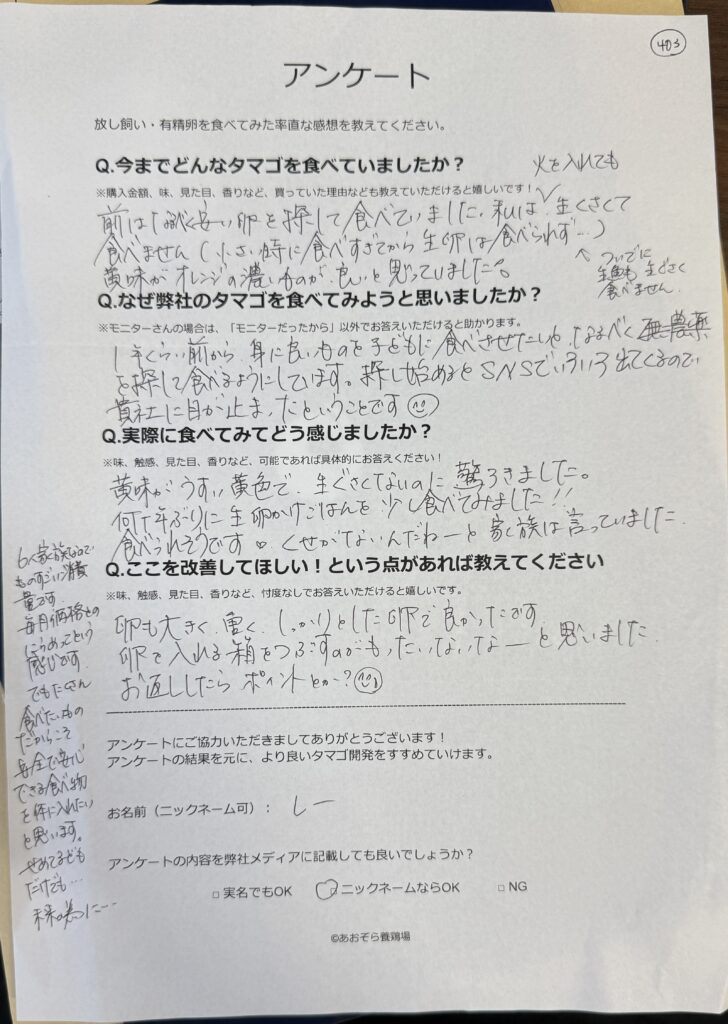 403
アンケート
放し飼い・有精卵を食べてみた率直な感想を教えてください。
Q.今までどんなタマゴを食べていましたか？
※購入金額、味、見た目、香りなど、買っていた理由なども教えていただけると嬉しいです！
火を入れても
前はなるべく安い卵を探して食べていました。私は生くさくて
食べません（小さい時に食べすぎてから生卵は食べられず…）
黄味がオレンジの濃いものが良いと思っていました。
ついでに
生魚も生ぐさく
食べません。
Q.なぜ弊社のタマゴを食べてみようと思いましたか？
※モニターさんの場合は、「モニターだったから」以外でお答えいただけると助かります。
1年くらい前から、身に良いものを子どもに食べさせたいや、なるべく無農薬
を探して食べるようにしています。探し始めるとSNSでいろいろ出てくるので
貴社に目が止まったということです
Q.実際に食べてみてどう感じましたか？
※味、触感、見た目、香りなど、可能であれば具体的にお答えください！
黄味がうすい黄色で、生ぐさくないのに驚ろきました。
何十年ぶりに生卵かけごはんを少し食べてみました!!
食べられそうです。くせがないんだねーと家族は言っていました
Q.ここを改善してほしい！という点があれば教えてください
※味、触感、見た目、香りなど、忖度なしでお答えいただけると嬉しいです。
卵も大きく、重く、しっかりとした卵で良かったです
卵で入れる箱をつぶすのがもったいないなーと思いました
お返ししたらポイントとか？
6人家族なので
ものすごい消費
量です
毎月価格との
にらめっこという
感じです
でもたくさん
食べたいもの
だからこそ
安全で安心
できる食べ物
を体に入れたい
と思います。
せめて子ども
だけでも…
未来の為に…
アンケートにご協力いただきましてありがとうございます！
アンケートの結果を元に、より良いタマゴ開発をすすめていけます。
お名前（ニックネーム可）： しー
アンケートの内容を弊社メディアに記載しても良いでしょうか？
□ 実名でもOK □ ニックネームならOK □ NG
©あおぞら養鶏場